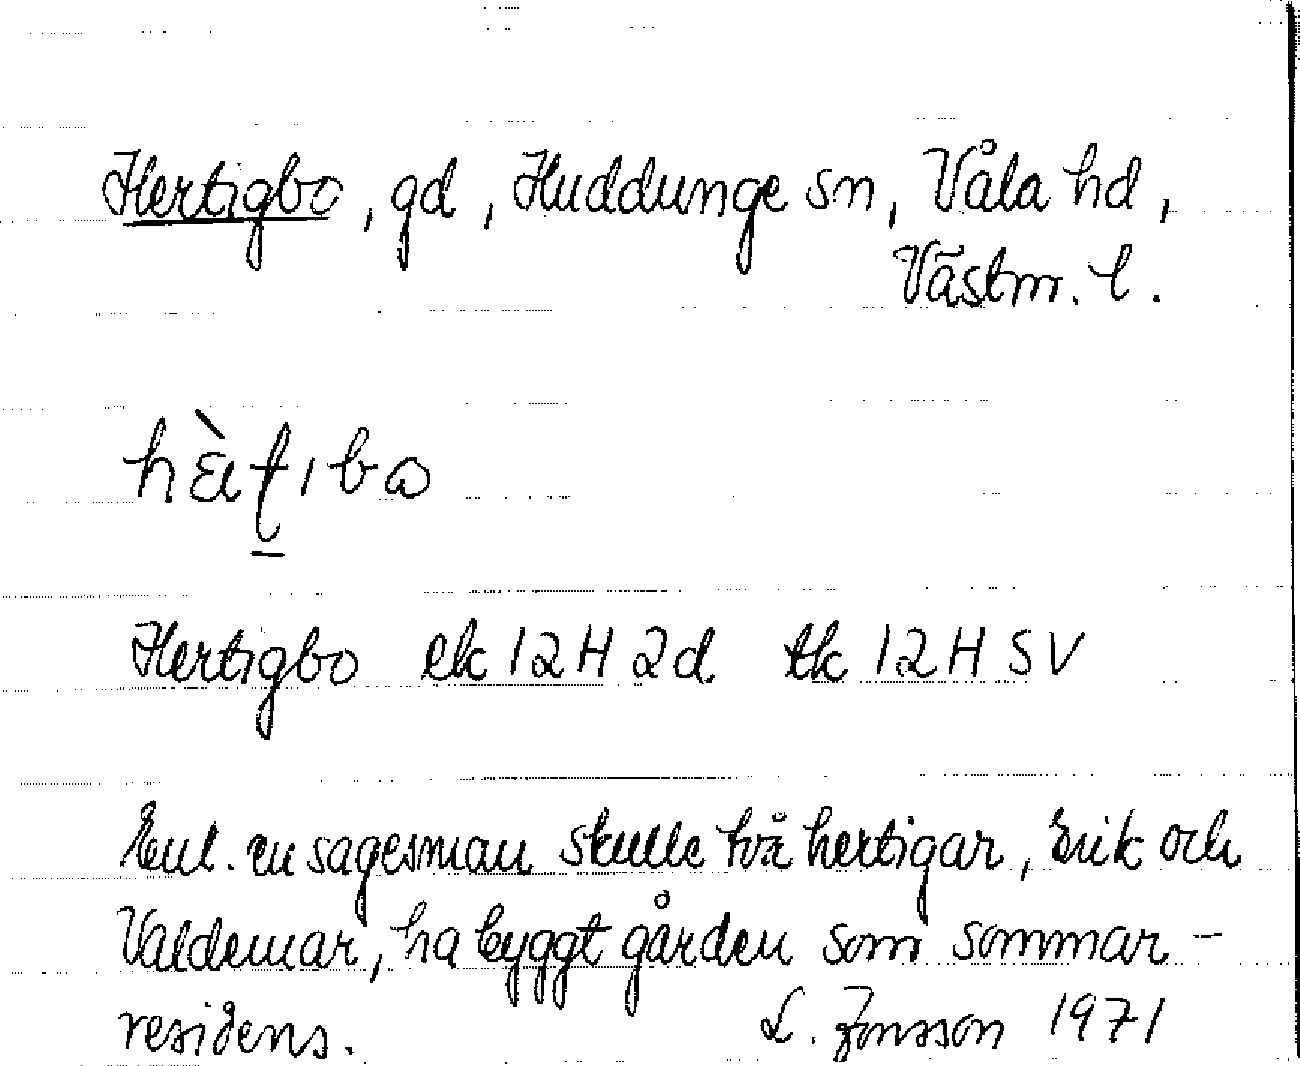 Hertigbo, gd, Huddunge sn, Våla hd,
Västm. l.
Hertigbo ek 12H 2d tk 12H SV
Enl. en sagesman skulle två hertigar, Erik och
Valdemar, ha byggt gården som sommar-
residens. L. Jonsson 1971